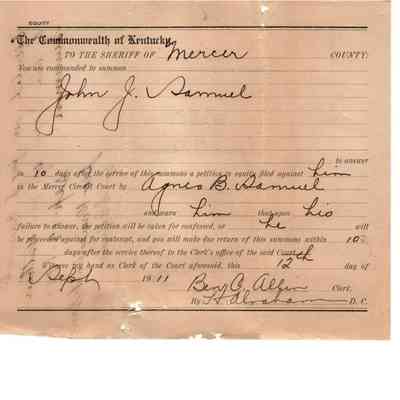 EQUITY
The Commonwealth of Kentucky,
TO THE SHERIFF OF Mercer COUNTY:
You are commanded to summon
John J. Samuel
to answer
in 10 days after the service of this summons a petition in equity filed against him
in the Mercer Circuit Court by Agnes B. Samuel
and warn him that upon his
failure to answer, the petition will be taken for confessed, or he will
be proceeded against for contempt, and you will make due return of this summons within 10
days after the service thereof to the Clerk's office of the said Court.
Witness my hand as Clerk of the Court aforesaid, this 12th day of
Sept 1911 Ben C. Allin Clerk.
By Abraham D. C.